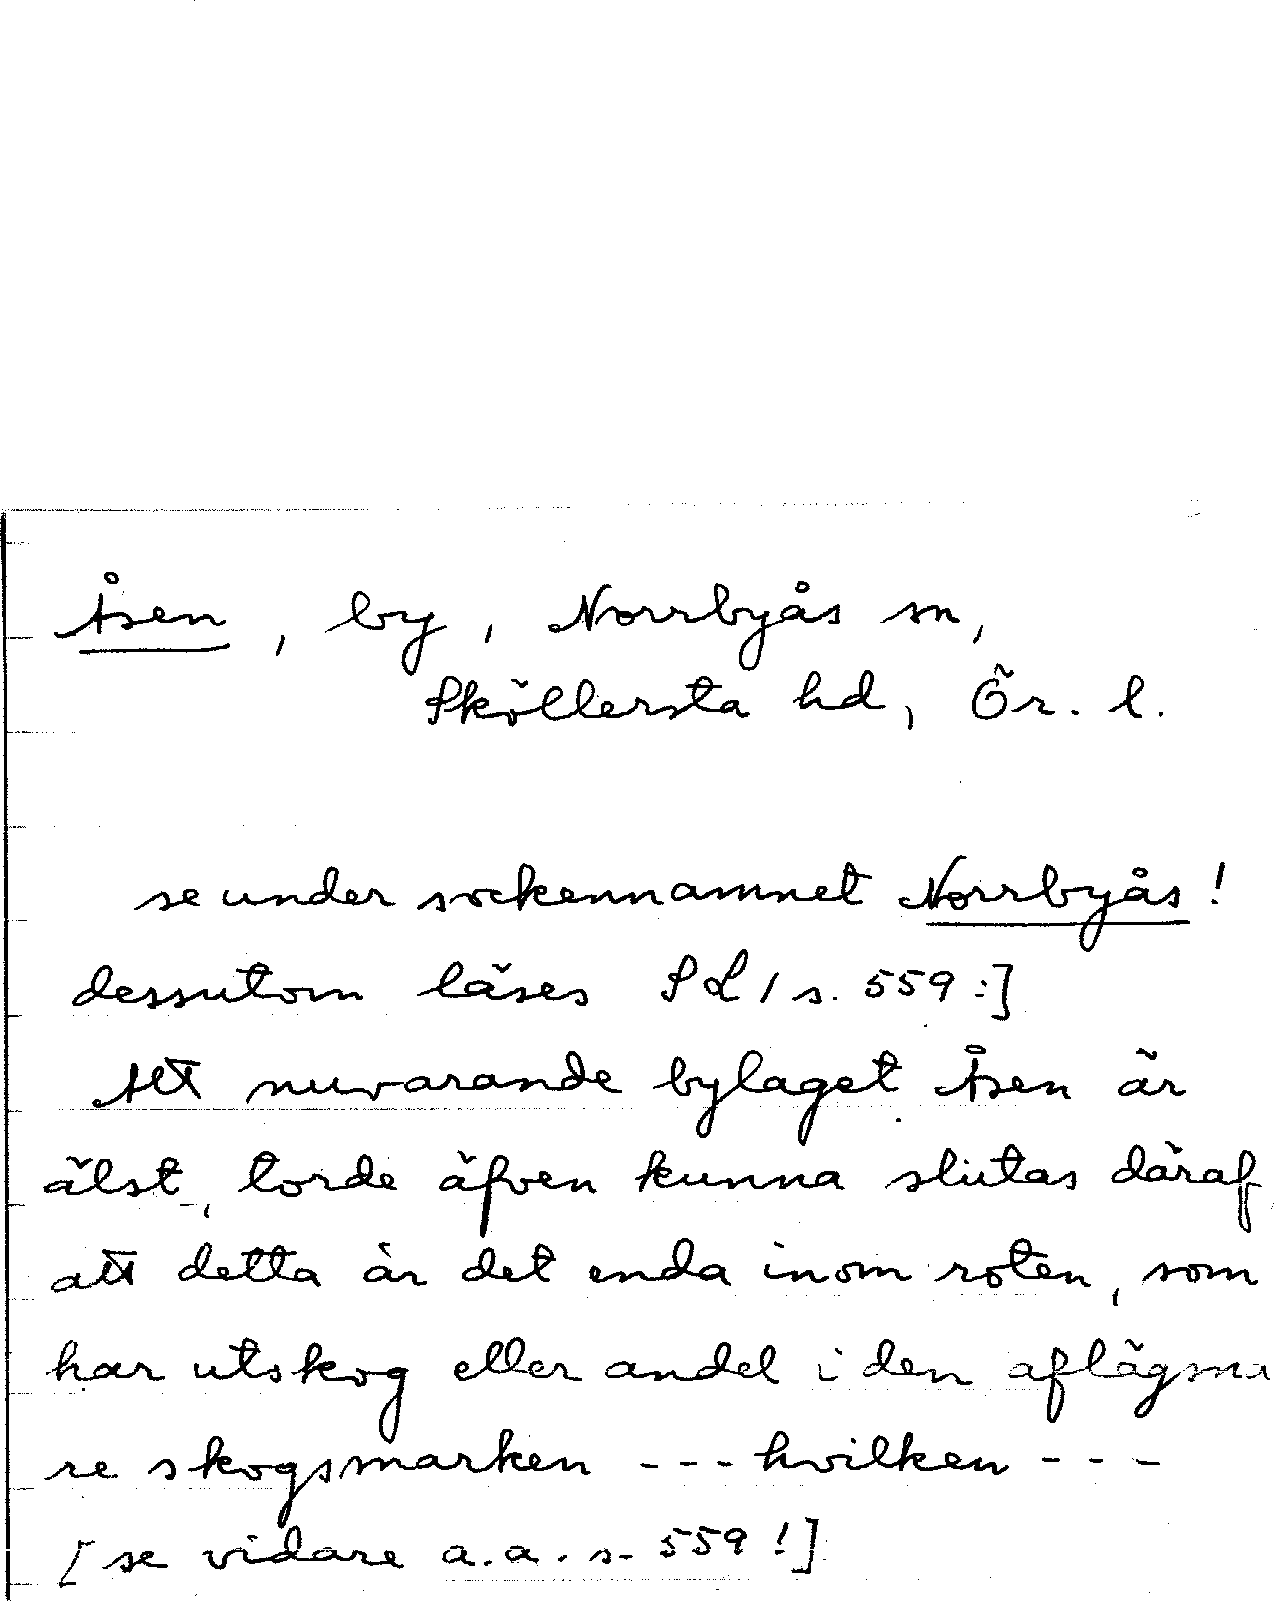 Åsen, by, Norrbyås sn,
Sköllersta hd, Ör. l.
se under sockennamnet Norrbyås!
dessutom läses SL1 s. 559:]
Att nuvarande bylaget Åsen är
älst, torde äfven kunna slutas däraf
att detta är det enda inom roten, som
har utskog eller andel i den aflägsna
re skogsmarken --- hvilken ---
[se vidare a.a. s. 559!]